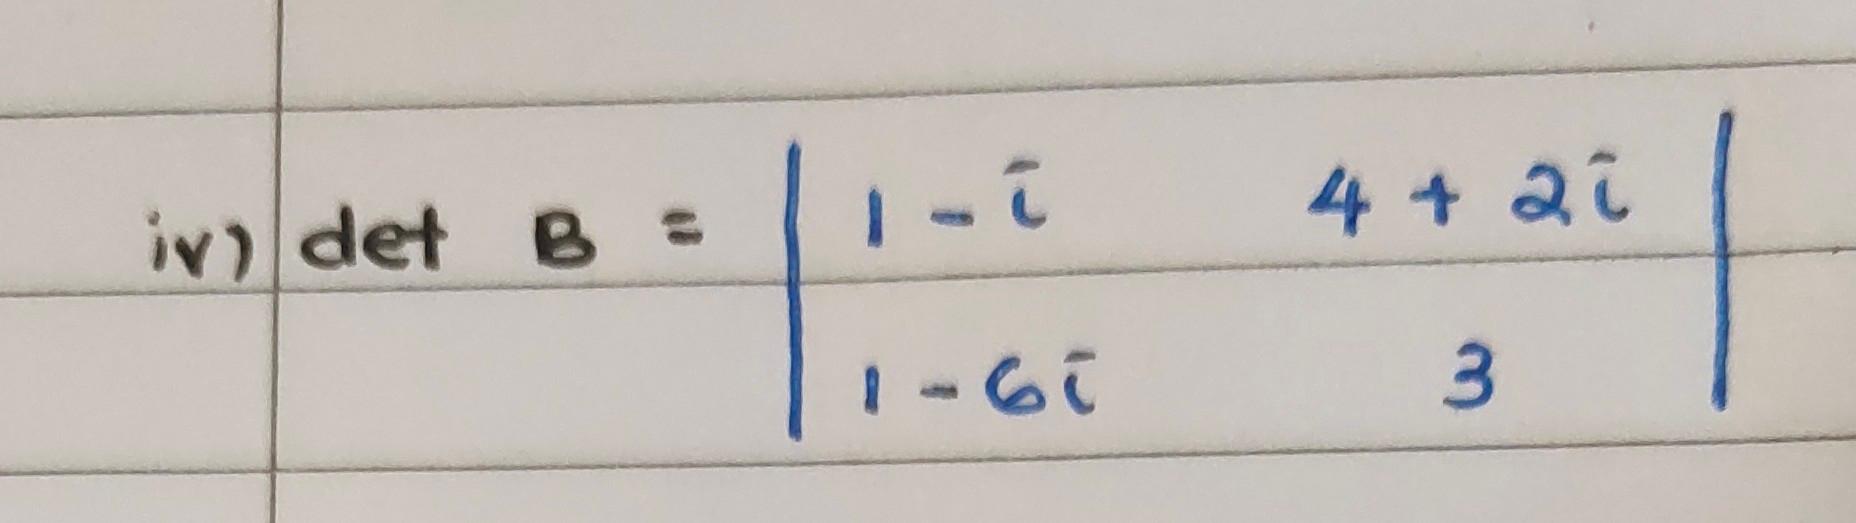 iv) det B = | 1 - i 4 + 2i |
| 1 - 6i 3 |